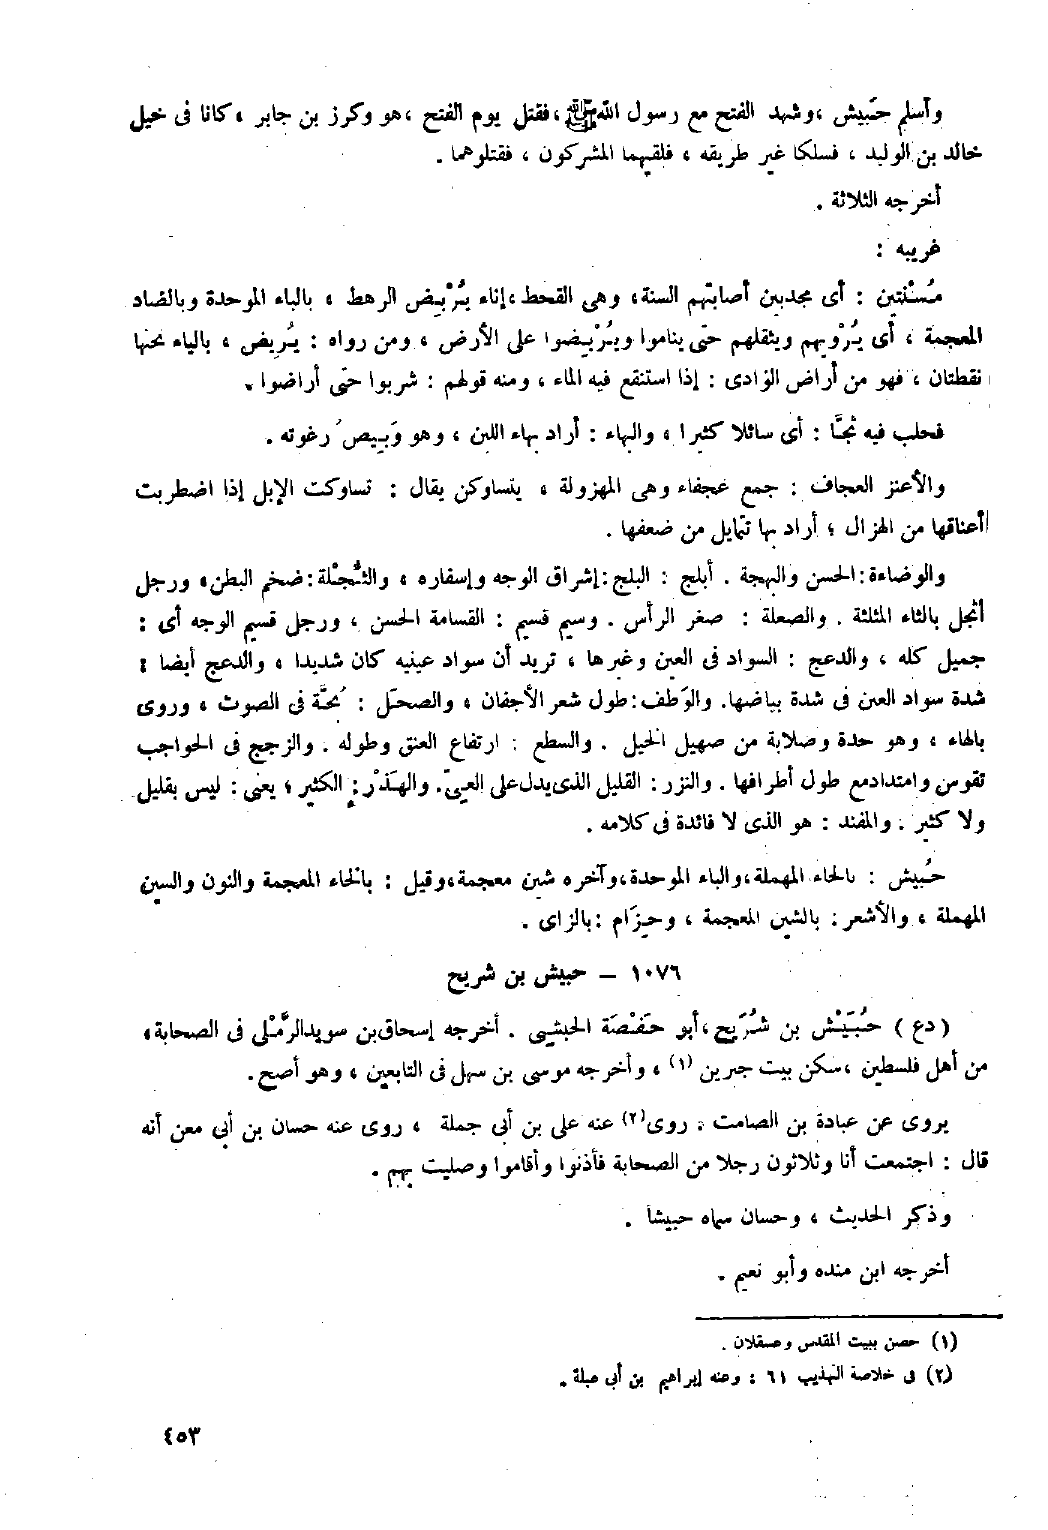 وأسلم حُبَيش ، وشهد الفتح مع رسول الله ﷺ ، فقتل يوم الفتح ، هو وكرز بن جابر ، كانا فى خيل
خالد بن الوليد ، فسلكا غير طريقه ، فلقيهما المشركون ، فقتلوهما .
أخرجه الثلاثة .
غريبه :
مُسْنْتين : أى مجدبين أصابتهم السنة، وهى القحط ، إناء يُرْبِض الرهط ، بالباء الموحدة وبالضاد
المعجمة ، أى يُرْوِيهم ويثقلهم حتى يناموا ويُرْبِضوا على الأرض ، ومن رواه : يُرِيض ، بالياء تحتها
نقطتان ، فهو من أراض الوادى : إذا استنقع فيه الماء ، ومنه قولهم : شربوا حتى أراضوا .
فحلب فيه ثَجًّا : أى سائلا كثيرا ، والبهاء : أراد بهاء اللبن ، وهو وَبِيصُ رغوته .
والأعنز العجاف : جمع عجفاء وهى المهزولة ، يتساوكن يقال : تساوكت الإبل إذا اضطربت
أعناقها من الهزال ؛ أراد بها تمايل من ضعفها .
والوضاءة : الحسن والبهجة . أبلج : البلج : إشراق الوجه وإسفاره ، والثُّجْلة : ضخم البطن، ورجل
أثجل بالثاء المثلثة . والصعلة : صغر الرأس . وسيم قسيم : القسامة الحسن ، ورجل قسيم الوجه أى :
جميل كله ، والدعج : السواد فى العين وغيرها ، تريد أن سواد عينيه كان شديدا ، والدعج أيضا :
شدة سواد العين فى شدة بياضها. والوَطف : طول شعر الأجفان ، والصحَل : بُحَّة فى الصوت ، وروى
بالهاء ، وهو حدة وصلابة من صهيل الخيل . والسطع : ارتفاع العنق وطوله . والزجج فى الحواجب
تقوس وامتداد مع طول أطرافها . والنزر : القليل الذى يدل على العيىّ. والهَذْر : الكثير ؛ يعنى : ليس بقليل
ولا كثير . والمفند : هو الذى لا فائدة فى كلامه .
حُبيش : بالحاء المهملة ، والباء الموحدة ، وآخره شين معجمة ، وقيل : بالخاء المعجمة والنون والسين
المهملة ، والأشعر : بالشين المعجمة ، وحِزَام : بالزاى .
١٠٧٦ – حبيش بن شريح
( دع ) حُبَيْش بن شُرَيح ، أبو حَفْصَة الحبشيى . أخرجه إسحاق بن سويد الرَّمْلى فى الصحابة،
من أهل فلسطين ، سكن بيت جبرين (١) ، وأخرجه موسى بن سهل فى التابعين ، وهو أصح .
يروى عن عبادة بن الصامت . روى(٢) عنه على بن أبى جملة ، روى عنه حسان بن أبى معن أنه
قال : اجتمعت أنا وثلاثون رجلا من الصحابة فأذنوا وأقاموا وصليت بهم .
وذكر الحديث ، وحسان سماه حبيشا .
أخرجه ابن منده وأبو نعيم .
(١) حصن ببيت المقدس وعسقلان .
(٢) فى خلاصة التهذيب ٦١ : وعنه إبراهيم بن أبى عبلة .
٤٥٣